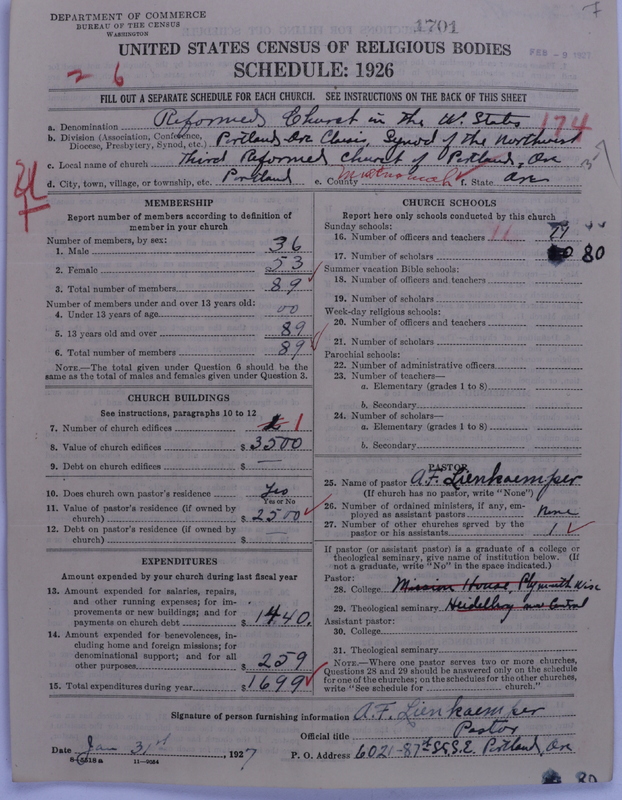 7
DEPARTMENT OF COMMERCE
BUREAU OF THE CENSUS
WASHINGTON
1701
UNITED STATES CENSUS OF RELIGIOUS BODIES
FEB - 9 1927
SCHEDULE: 1926
2 6
FILL OUT A SEPARATE SCHEDULE FOR EACH CHURCH. SEE INSTRUCTIONS ON THE BACK OF THIS SHEET
a. Denomination Reformed Church in the U. States 174
b. Division (Association, Conference, Diocese, Presbytery, Synod, etc.) Portland-Ore Classis, Synod of the Northwest
c. Local name of church Third Reformed Church of Portland, Ore
d. City, town, village, or township, etc. Portland e. County Multnomah f. State Ore
MEMBERSHIP
Report number of members according to definition of member in your church
Number of members, by sex:
1. Male 36
2. Female 53
3. Total number of members 89
Number of members under and over 13 years old:
4. Under 13 years of age 00
5. 13 years old and over 89
6. Total number of members 89
NOTE.—The total given under Question 6 should be the same as the total of males and females given under Question 3.
CHURCH BUILDINGS
See instructions, paragraphs 10 to 12
7. Number of church edifices 1
8. Value of church edifices $ 3500
9. Debt on church edifices $ —
10. Does church own pastor's residence Yes
Yes or No
11. Value of pastor's residence (if owned by church) $ 2500
12. Debt on pastor's residence (if owned by church) $ —
EXPENDITURES
Amount expended by your church during last fiscal year
13. Amount expended for salaries, repairs, and other running expenses; for improvements or new buildings; and for payments on church debt $ 1440.
14. Amount expended for benevolences, including home and foreign missions; for denominational support; and for all other purposes $ 259
15. Total expenditures during year $ 1699
CHURCH SCHOOLS
Report here only schools conducted by this church
Sunday schools:
16. Number of officers and teachers 11
17. Number of scholars 80
Summer vacation Bible schools:
18. Number of officers and teachers
19. Number of scholars
Week-day religious schools:
20. Number of officers and teachers
21. Number of scholars
Parochial schools:
22. Number of administrative officers
23. Number of teachers—
a. Elementary (grades 1 to 8)
b. Secondary
24. Number of scholars—
a. Elementary (grades 1 to 8)
b. Secondary
PASTOR
25. Name of pastor A.F. Lienkaemper
(If church has no pastor, write "None")
26. Number of ordained ministers, if any, employed as assistant pastors None
27. Number of other churches served by the pastor or his assistants 1
If pastor (or assistant pastor) is a graduate of a college or theological seminary, give name of institution below. (If not a graduate, write "No" in the space indicated.)
Pastor:
28. College Mission House, Plymouth Wisc
29. Theological seminary Heidelberg now Central
Assistant pastor:
30. College
31. Theological seminary
NOTE.—Where one pastor serves two or more churches, Questions 28 and 29 should be answered only on the schedule for one of the churches; on the schedules for the other churches, write "See schedule for church."
Signature of person furnishing information A.F. Lienkaemper
Official title Pastor
Date Jan 31st, 1927 P. O. Address 6021-87th St S.E. Portland, Ore
8-5518a 11-9024
80